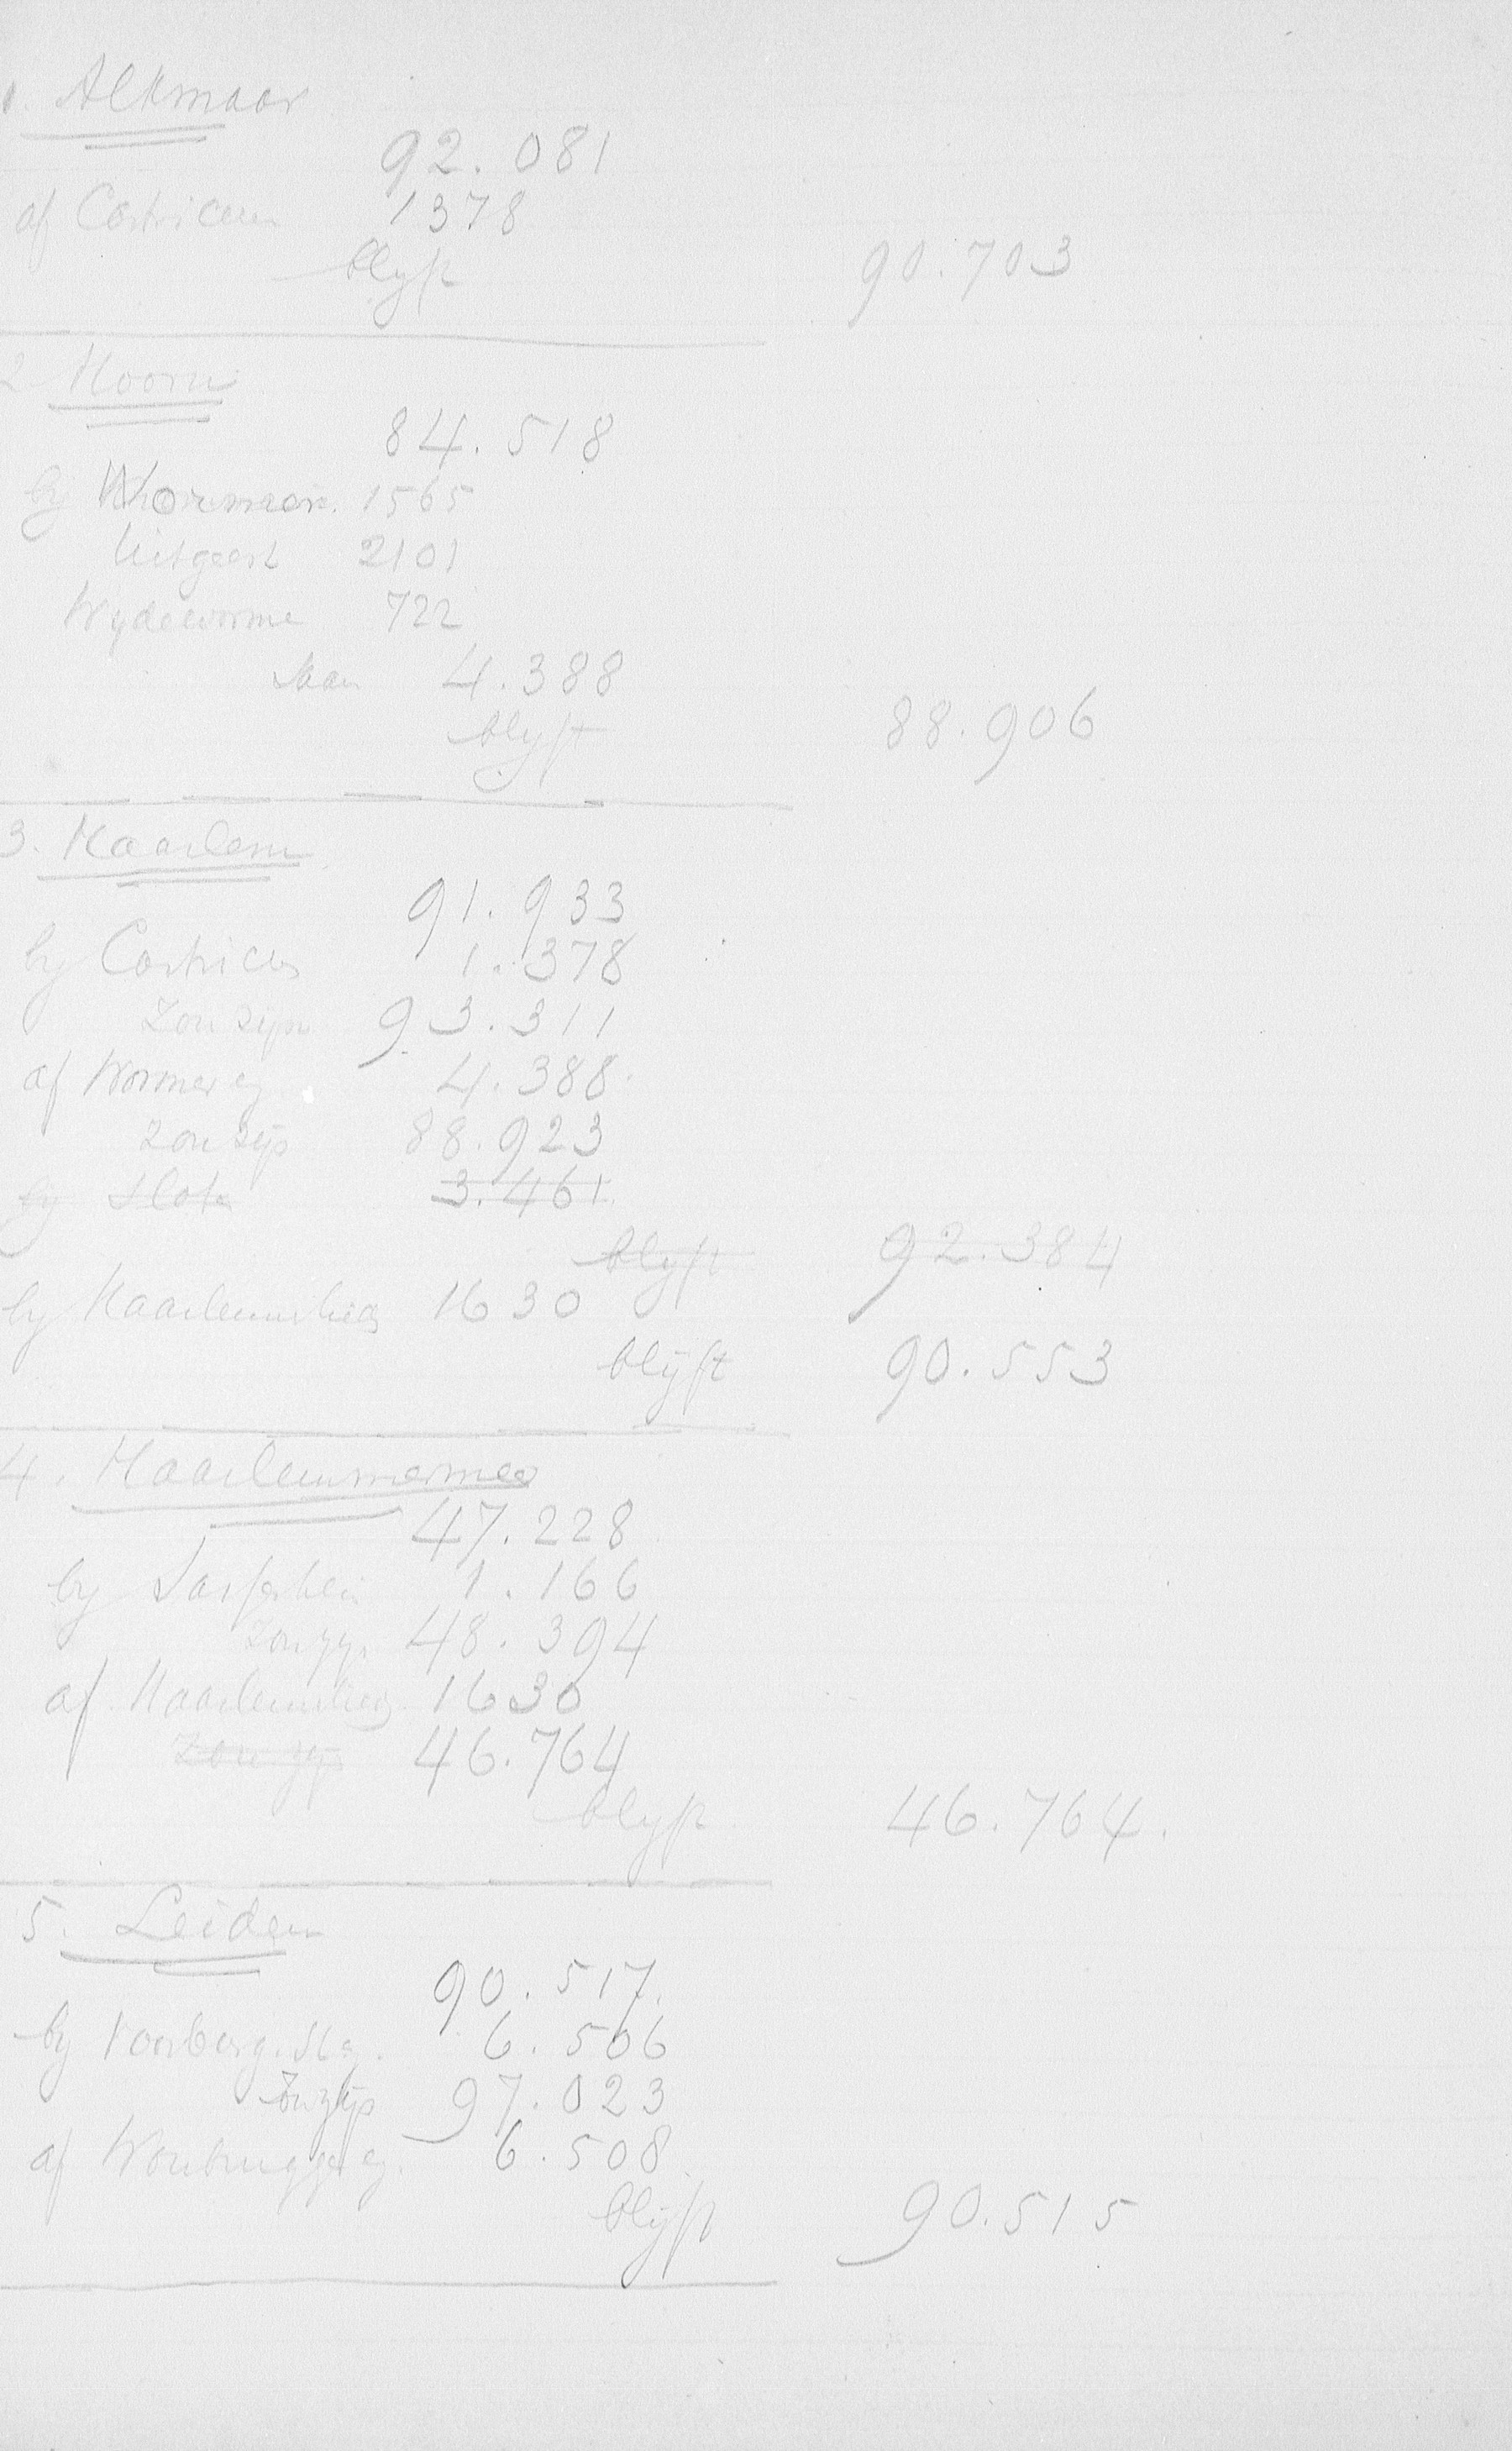 1. Alkmaar
92.081
af Castricum 1378
blyft 90.703
2. Hoorn
84.518
by Wormer 1565
Uitgeest 2101
Wydewormer 722
4.388
blyft 88.906
3. Haarlem
91.933
by Castricum 1.378
Zou zijn 93.311
af Wormer 4.388
zou zijn 88.923
by Sloten 3.461
blyft 92.384
by Haarlemmerlied 1630
blijft 90.553
4. Haarlemmermeer
47.228
by Sassenheim 1.166
Zou zijn 48.394
af Haarlemmerlied 1630
Zou zijn 46.764
blyft 46.764.
5. Leiden
90.517.
by Voorburg 6.506
Zou zijn 97.023
af Woubrugge 6.508
blijft 90.515